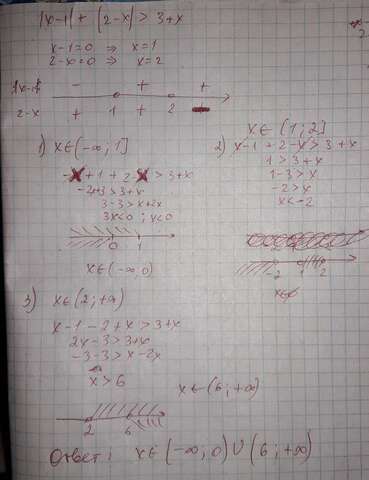 |x-1| + |2-x| > 3+x
x-1=0 ⇒ x=1
2-x=0 ⇒ x=2
- + +
2-x + 1 + 2 -
1) x∈(-∞; 1]
-x+1+2-x > 3+x
-2x+3>3+x
3-3>x+2x
3x<0; x<0
0 1
x∈(-∞; 0)
x∈(1; 2]
2) x-1+2-x>3+x
1>3+x
1-3>x
-2>x
x<-2
-2 1 2
x∈∅
3) x∈(2; +∞)
x-1-2+x>3+x
2x-3>3+x
-3-3>x-2x
x>6
x∈(6; +∞)
2 6
Ответ: x∈(-∞; 0)∪(6; +∞)